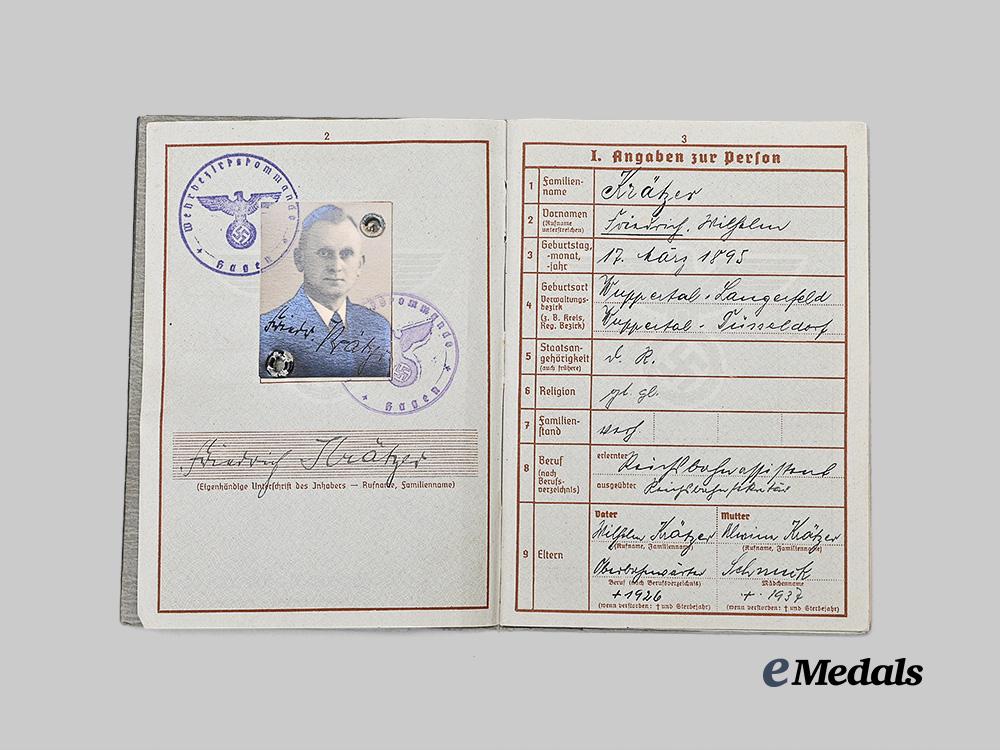 2
Wehrbezirkskommando
Hagen
Friedr. Krätzer
Wehrbezirkskommando
Hagen
Friedrich Krätzer
(Eigenhändige Unterschrift des Inhabers — Rufname, Familienname)
3
I. Angaben zur Person
1 Familienname Krätzer
2 Vornamen (Rufname unterstreichen) Friedrich, Wilhelm
3 Geburtstag, -monat, -jahr 17. März 1895
4 Geburtsort Wuppertal-Langerfeld
Verwaltungsbezirk (z. B. Kreis, Reg. Bezirk) Wuppertal-Düsseldorf
5 Staatsangehörigkeit (auch frühere) D. R.
6 Religion gt. gl.
7 Familienstand verh.
8 Beruf (nach Berufsverzeichnis) erlernter Reichsbahnassistent
ausgeübter Reichsbahnsekretär
9 Eltern
Vater Mutter
Wilhelm Krätzer Alwine Krätzer
(Rufname, Familienname) (Rufname, Familienname)
Oberbahnwärter
Beruf (nach Berufsverzeichnis) Mädchenname
+ 1926 + 1937
(wenn verstorben: † und Sterbejahr) (wenn verstorben: † und Sterbejahr)
eMedals